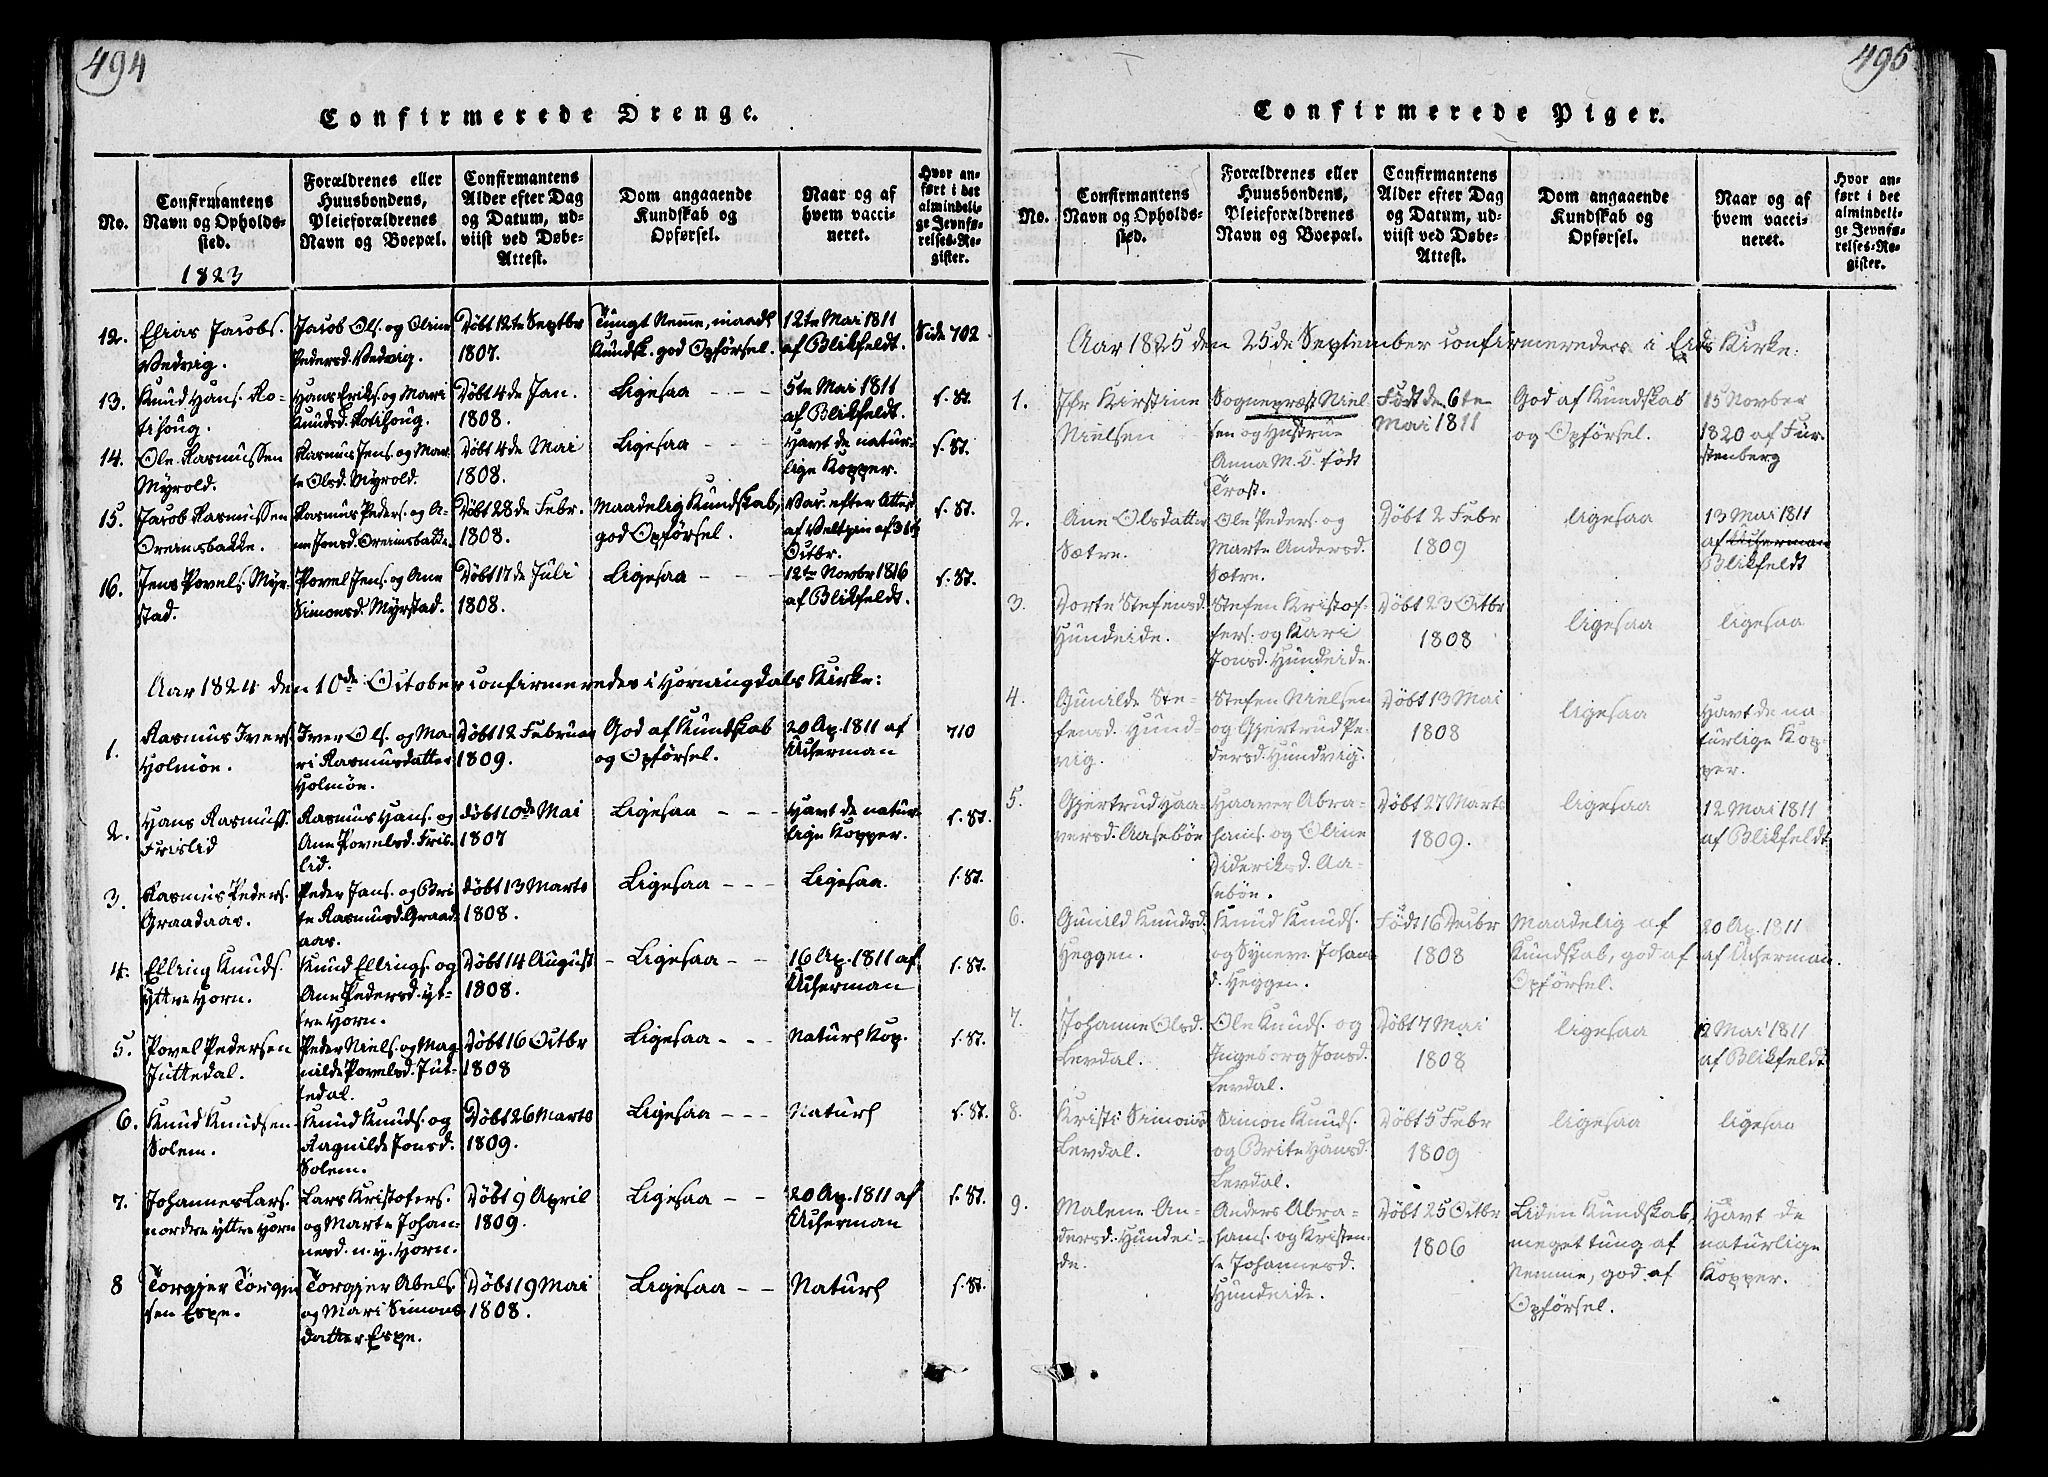 494
Confirmerede Drenge.
No.
Confirmantens
Navn og Opholds-
sted.
1823
Forældrenes eller
Huusbondens,
Pleieforældrenes
Navn og Boepæl.
Confirmantens
Alder efter Dag
og Datum, ud-
viist ved Døbe-
Attest.
Dom angaaende
Kundskab og
Opførsel.
Naar og af
hvem vacci-
neret.
Hvor an-
ført i det
almindeli-
ge Jevnfø-
relses-Re-
gister.
12.
Elias Jacobs.
Vedvig.
Jacob Ols. og Oline
Pedersd. Vedvig.
Døbt 12te Septbr
1807.
Tungt Nemme, maadl
Kundsk. god Opførsel.
12te Mai 1811
af Blikfeldt.
Side 702
13.
Knud Hans. Ro-
tihoug.
Hans Eriks. og Mari
Knudsd. Rotihoug.
Døbt 4de Jan.
1808.
Ligesaa - - -
5te Mai 1811
af Blikfeldt.
s. St.
14.
Ole Rasmussen
Myrold.
Rasmus Jens. og Mar-
te Olsd. Myrold.
Døbt 4de Mai
1808.
Ligesaa - - -
Havt de natur-
lige Kopper.
s. St.
15.
Jacob Rasmussen
Rasmus Peders. og A-
ne Jonsd.
Døbt 28de Febr.
1808.
Maadelig Kundskab,
god Opførsel.
Vac. efter Attest
af
Octbr.
s. St.
16.
Jens Povels. Myr-
stad.
Povel Jens. og Ane
Simonsd. Myrstad.
Døbt 17de Juli
1808.
Ligesaa - - -
12te Novbr 1816
af Blikfeldt.
s. St.
Aar 1824 den 10de October confirmeredes i Horningdals Kirke:
1.
Rasmus Ivers.
Holmøe.
Iver Ols. og Ma-
ri Rasmusdatter
Holmøe.
Døbt 12 Februar
1809.
God af Kundskab
og Opførsel.
20 Ap. 1811 af
Ackerman
710
2.
Hans Rasmuss.
Frislid
Rasmus Hans. og
Ane Povelsd. Fris-
lid.
døbt 10de Mai
1807
Ligesaa - - -
Havt de natur-
lige Kopper.
s. St.
3.
Rasmus Peders.
Graadaas.
Peder Jans. og Bri-
te Rasmusd. Graad-
aas.
døbt 13 Marts
1808.
Ligesaa - - -
Ligesaa.
s. St.
4.
Elling Knuds.
Yttre Horn.
Knud Ellings. og
Ane Pedersd. yt-
tre Horn.
Døbt 14 August
1808.
- Ligesaa - -
16 Ap. 1811 af
Ackerman
s. St.
5.
Povel Pedersen
Juttedal.
Peder Niels. og Mag-
nilde Povelsd. Jut-
tedal.
Døbt 16 Octbr
1808
Ligesaa - - -
Naturl Kop.
s. St.
6.
Knud Knudsen
Solem.
Knud Knuds. og
Ragnilde Jonsd.
Solem.
Døbt 26 Marts
1809.
Ligesaa - - -
Naturl
s. St.
7.
Johannes Lars.
nordre yttre Horn
Lars Kristofers.
og Marte Johan-
nesd. n. y. Horn.
Døbt 9 April
1809.
Ligesaa - -
20 Ap. 1811 af
Ackerman
s. St.
8
Torgjer Torgjer-
sen Espe.
Torgjer Abels
og Mari Simons-
datter Espe.
Døbt 19 Mai
1808.
Ligesaa - -
Naturl
s. St.
495
Confirmerede Piger.
No.
Confirmantens
Navn og Opholds-
sted.
Forældrenes eller
Huusbondens,
Pleieforældrenes
Navn og Boepæl.
Confirmantens
Alder efter Dag
og Datum, ud-
viist ved Døbe-
Attest.
Dom angaaende
Kundskab og
Opførsel.
Naar og af
hvem vacci-
neret.
Hvor an-
ført i det
almindeli-
ge Jevnfø-
relses-Re-
gister.
Aar 1825 den 25de September confirmeredes i Eids Kirke:
1.
Jfr Kirstine
Nielsen
Sognepræst Niel-
sen og Hustrue
Anna M. C. født
Trost.
Født den 6te
Mai 1811
God af Kundskab
og Opførsel.
15 Novber
1820 af Für-
stenberg
2.
Ane Olsdatter
Sætre.
Ole Peders. og
Marte Andersd.
Sætre.
Døbt 2 Febr
1809
ligesaa
13 Mai 1811
af Ackerman
Blikfeldt
3.
Dorte Stefensd.
Hundeide.
Stefen Kristof-
fers. og Kari
Jonsd. Hundeide.
Døbt 23 Octbr
1808
ligesaa
ligesaa
4.
Gunilde Ste-
fensd. Hund-
vig.
Stefen Nielsen
og Gjertrud Pe-
dersd. Hundvig.
Døbt 13 Mai
1808
ligesaa
Havt de na-
turlige Kop-
per.
5.
Gjertrud Haa-
versd. Aasebøe
Haaver Abra-
hams. og Oline
Dideriksd. Aa-
sebøe.
Døbt 27 Marts
1809.
ligesaa
12 Mai 1811
af Blikfeldt
6.
Gunild Knudsd.
Heggen.
Knud Knuds.
og Synneve Johan-
d. Heggen.
Født 16 Decbr
1808
Maadelig af
Kundskab, god af
Opførsel.
20 Ap. 1811
af Ackerman.
7.
Johanne Olsd.
Levdal.
Ole Knuds. og
Ingeborg Jonsd.
Levdal.
Døbt 7 Mai
1808
ligesaa
12 Mai 1811
af Blikfeldt
8.
Kristi Simonsd
Levdal.
Simon Knuds.
og Brite Hansd.
Levdal.
Døbt 5 Febr
1809
ligesaa
ligesaa
9.
Malene An-
dersd. Hundei-
de.
Anders Abra-
hams. og Kristen-
se Johannesd.
Hundeide.
Døbt 25 Octbr
1806
Liden Kundskab,
meget tung af
Nemme, god af
Opførsel.
Havt de
naturlige
Kopper.